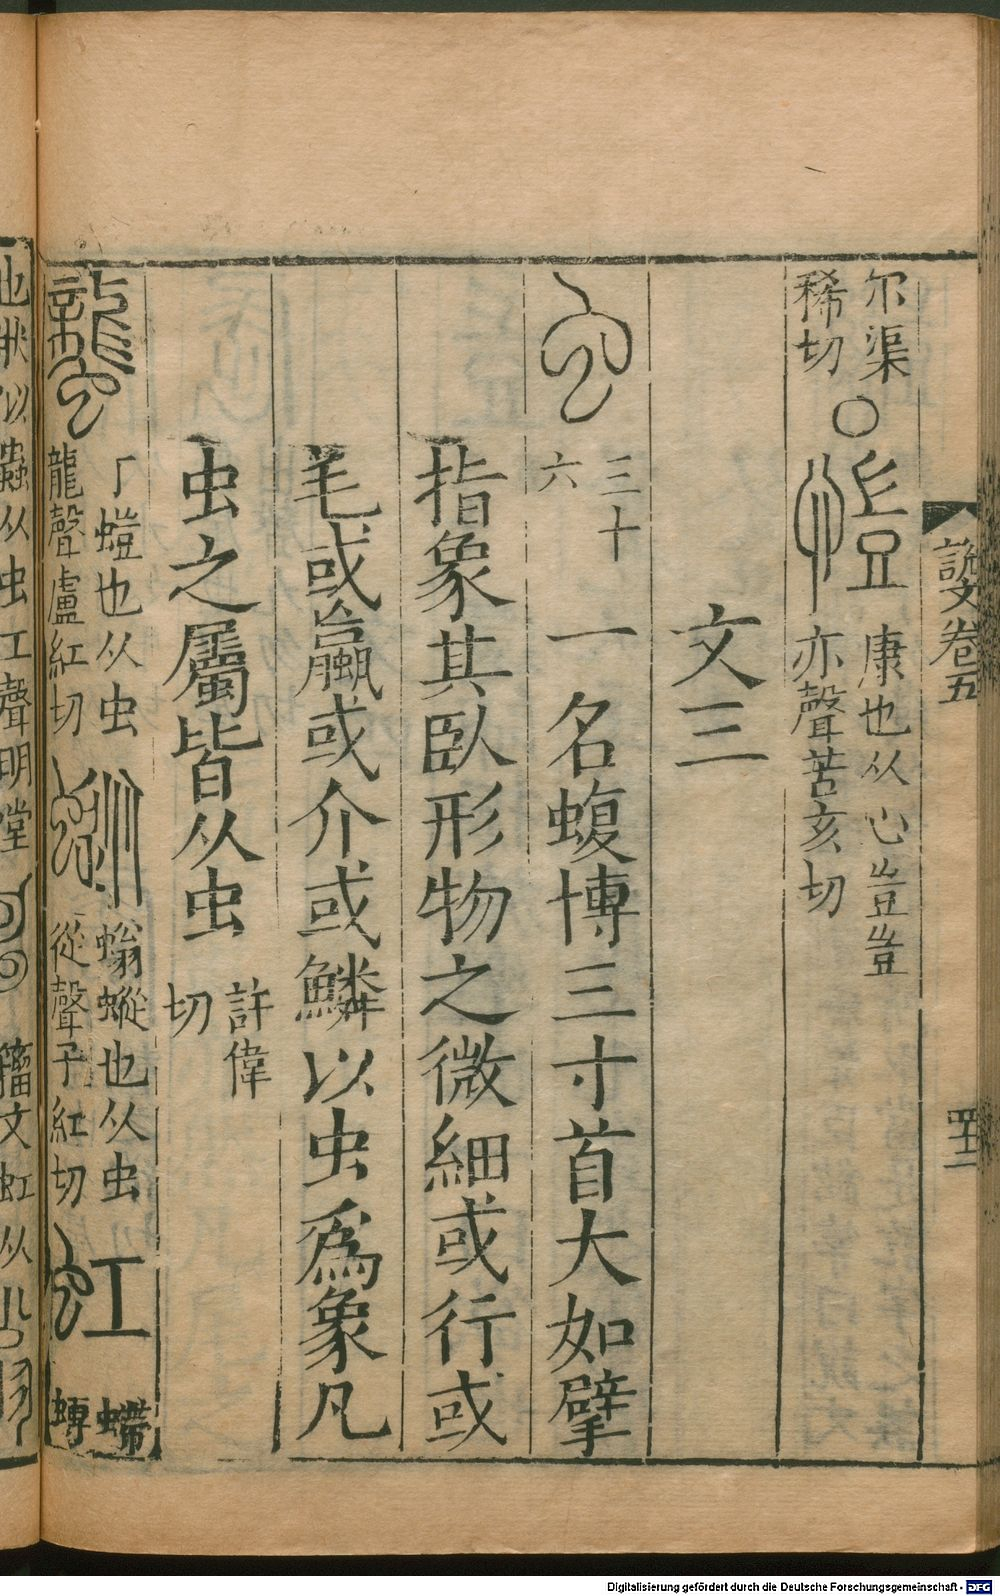 尔渠
稀切
○
愷
康也从心豈豈
亦聲苦亥切
文三
虫
三十
六
一名蝮博三寸首大如擘
指象其臥形物之微細或行或
毛或蠃或介或鱗以虫爲象凡
虫之屬皆从虫
許偉
切
蠪
丁螘也从虫
龍聲盧紅切
蓊蜙也从虫
從聲子紅切
虹
螮
蝀
也狀以蟲从虫工聲明堂
籒文虹从
説文卷五
四十二
Digitalisierung gefördert durch die Deutsche Forschungsgemeinschaft - DFG